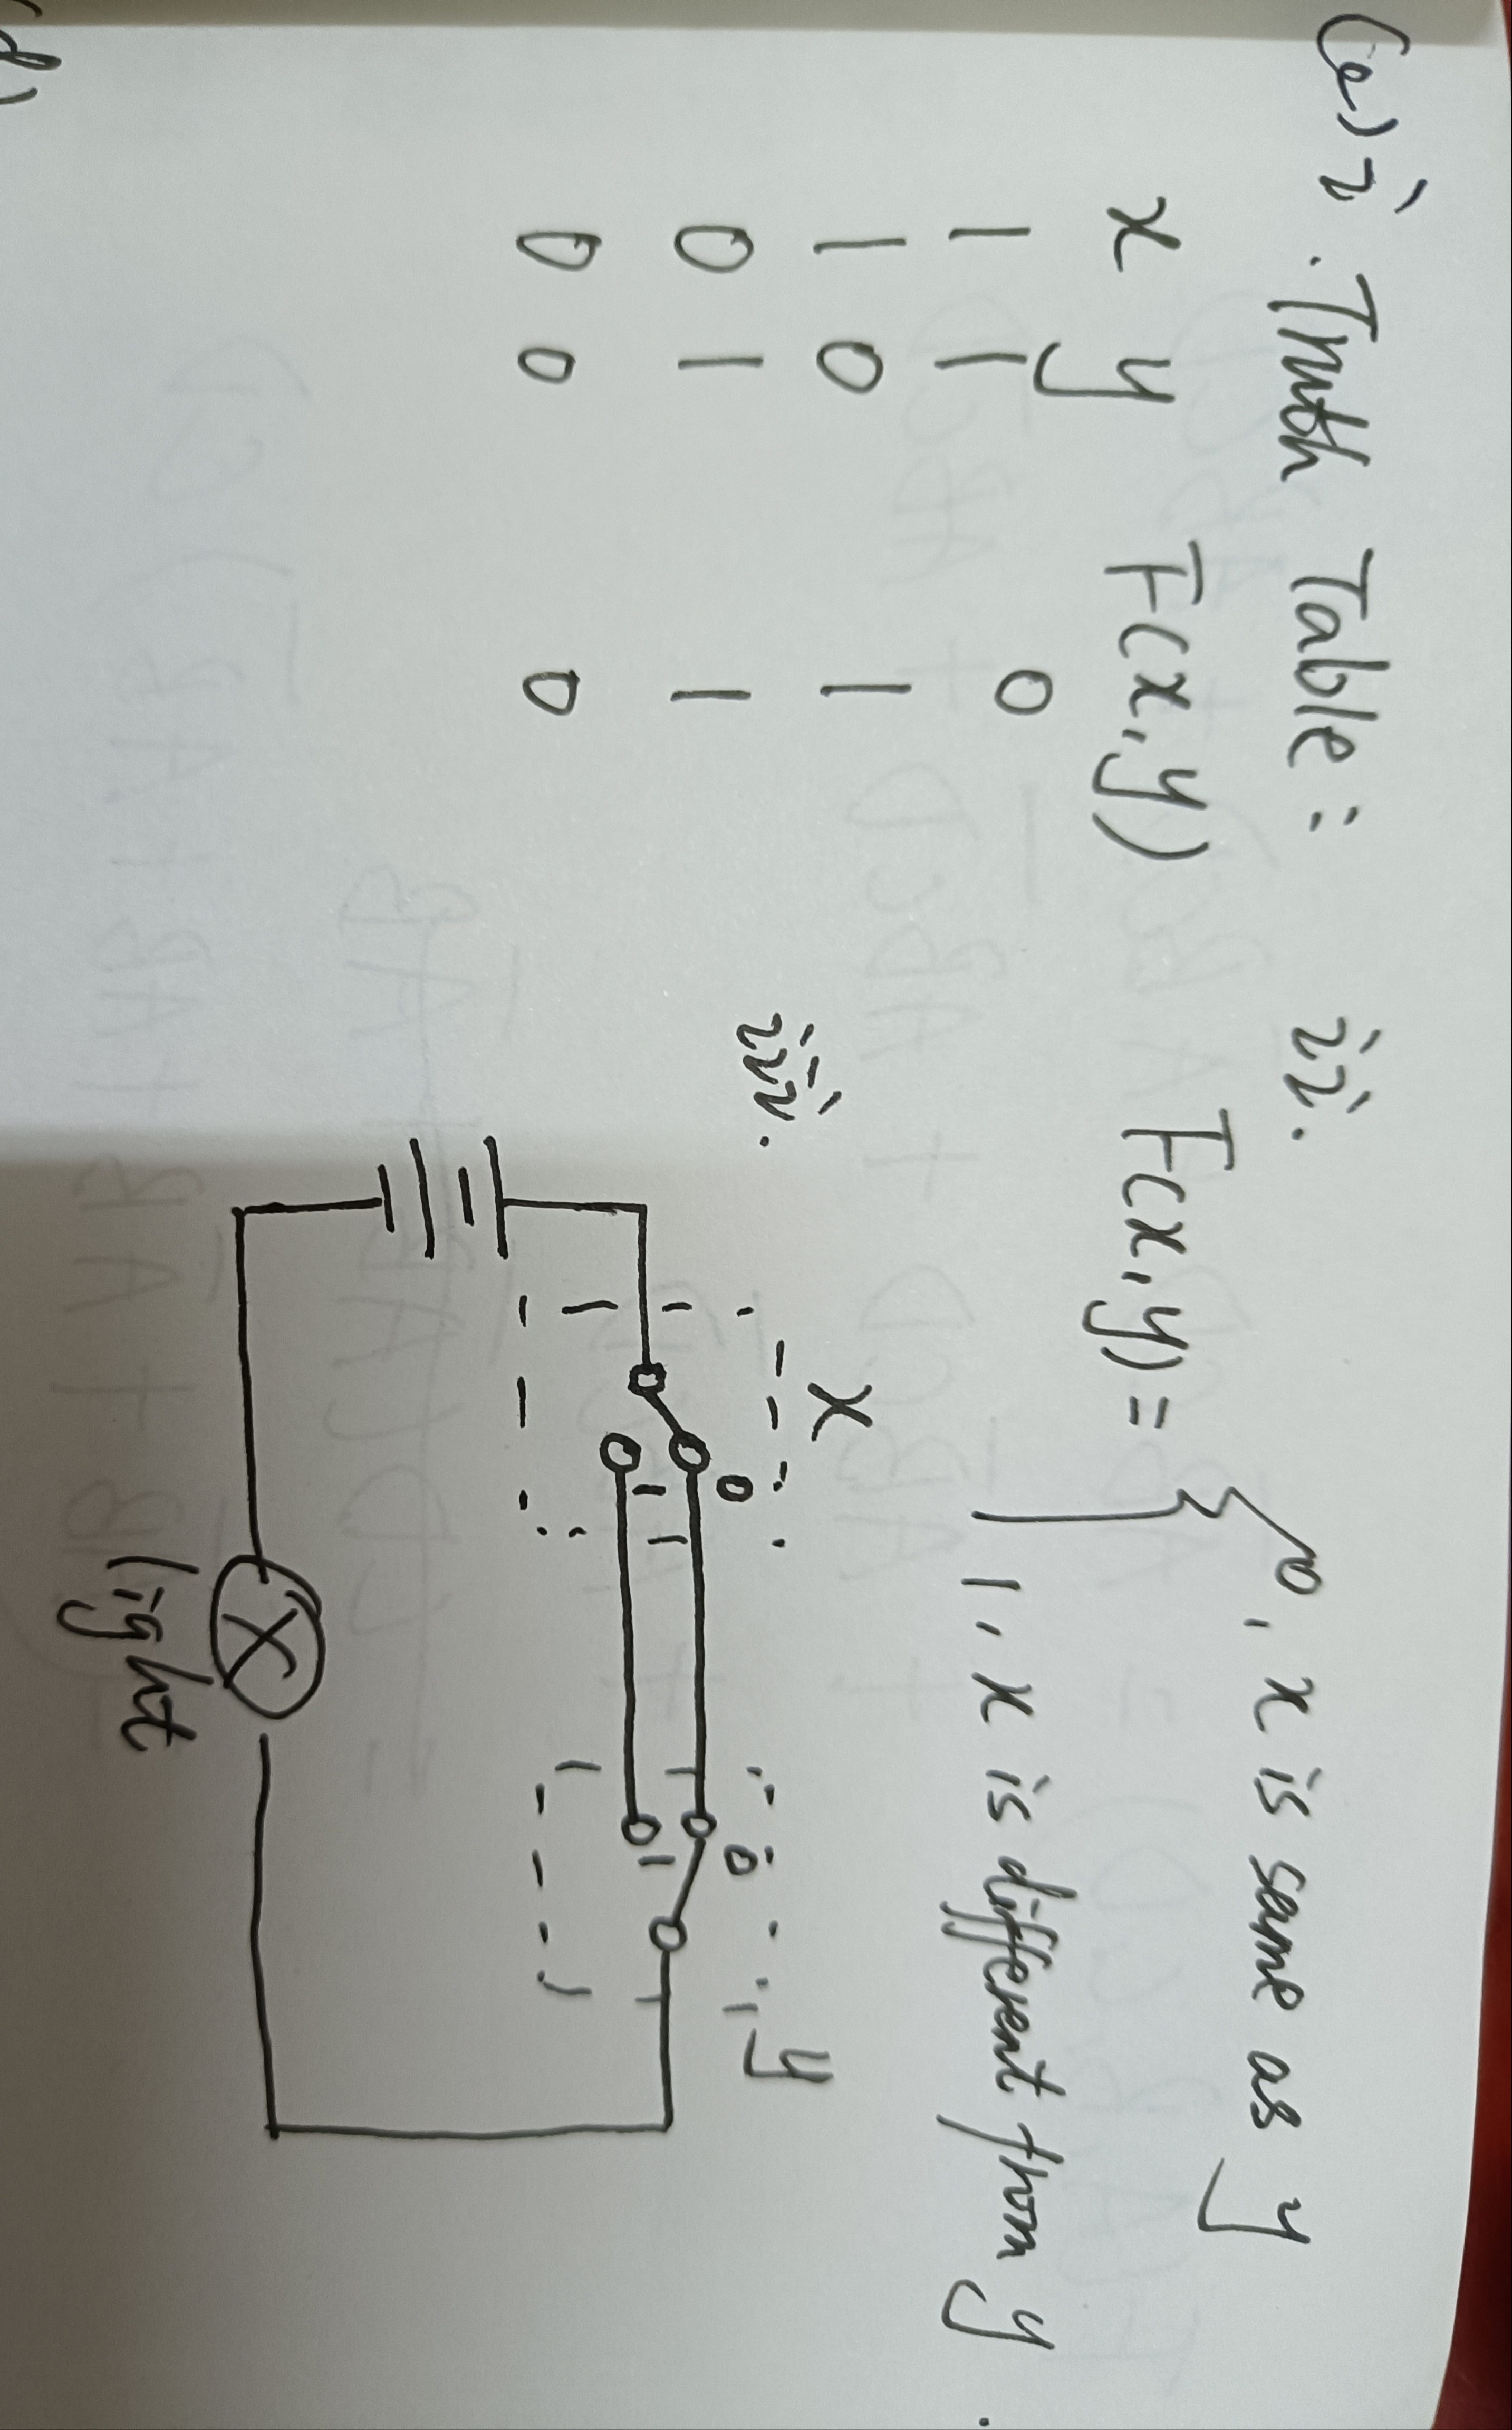 (a) i. Truth Table:
x y F(x,y)
1 1 0
1 0 1
0 1 1
0 0 0
ii. F(x,y) = { 0, x is same as y
1, x is different from y
iii.
x y
0 0
1 1
light